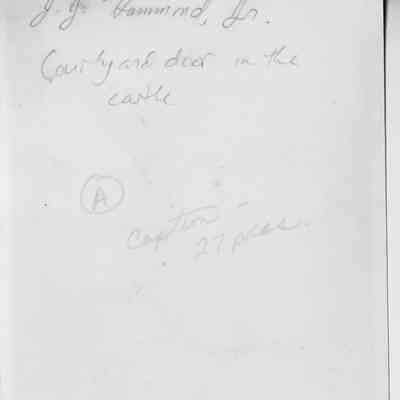 J. H. Hammond, Jr.
Courtyard door in the
castle
A
Caption -
27 picas.